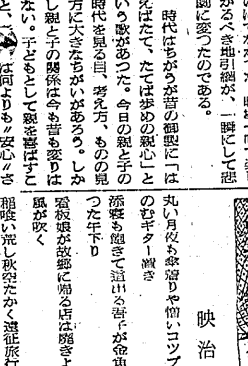 かるべき地引網が、一瞬にして悲
劇に変つたのである。
時代はちがうが昔の御製に「は
えばたて、たてば歩めの親心」と
いう歌があつた。今日の親と子の
時代を見る目、考え方、ものの見
方に大きなちがいがあろう。しか
し親と子の関係は今も昔も変りは
ない。子どもとして親を喜ばすこ
と、は何よりも〃安心〃さ
映治
丸い月夜も傘着りや憎いコツプ
のむギター渡き
添寝も飽きて這出る吾子が金魚
つた年下り
看板娘が故郷に帰る店は廃ぎよ
風が吹く
稲喰い荒し秋空たかく遠征旅行